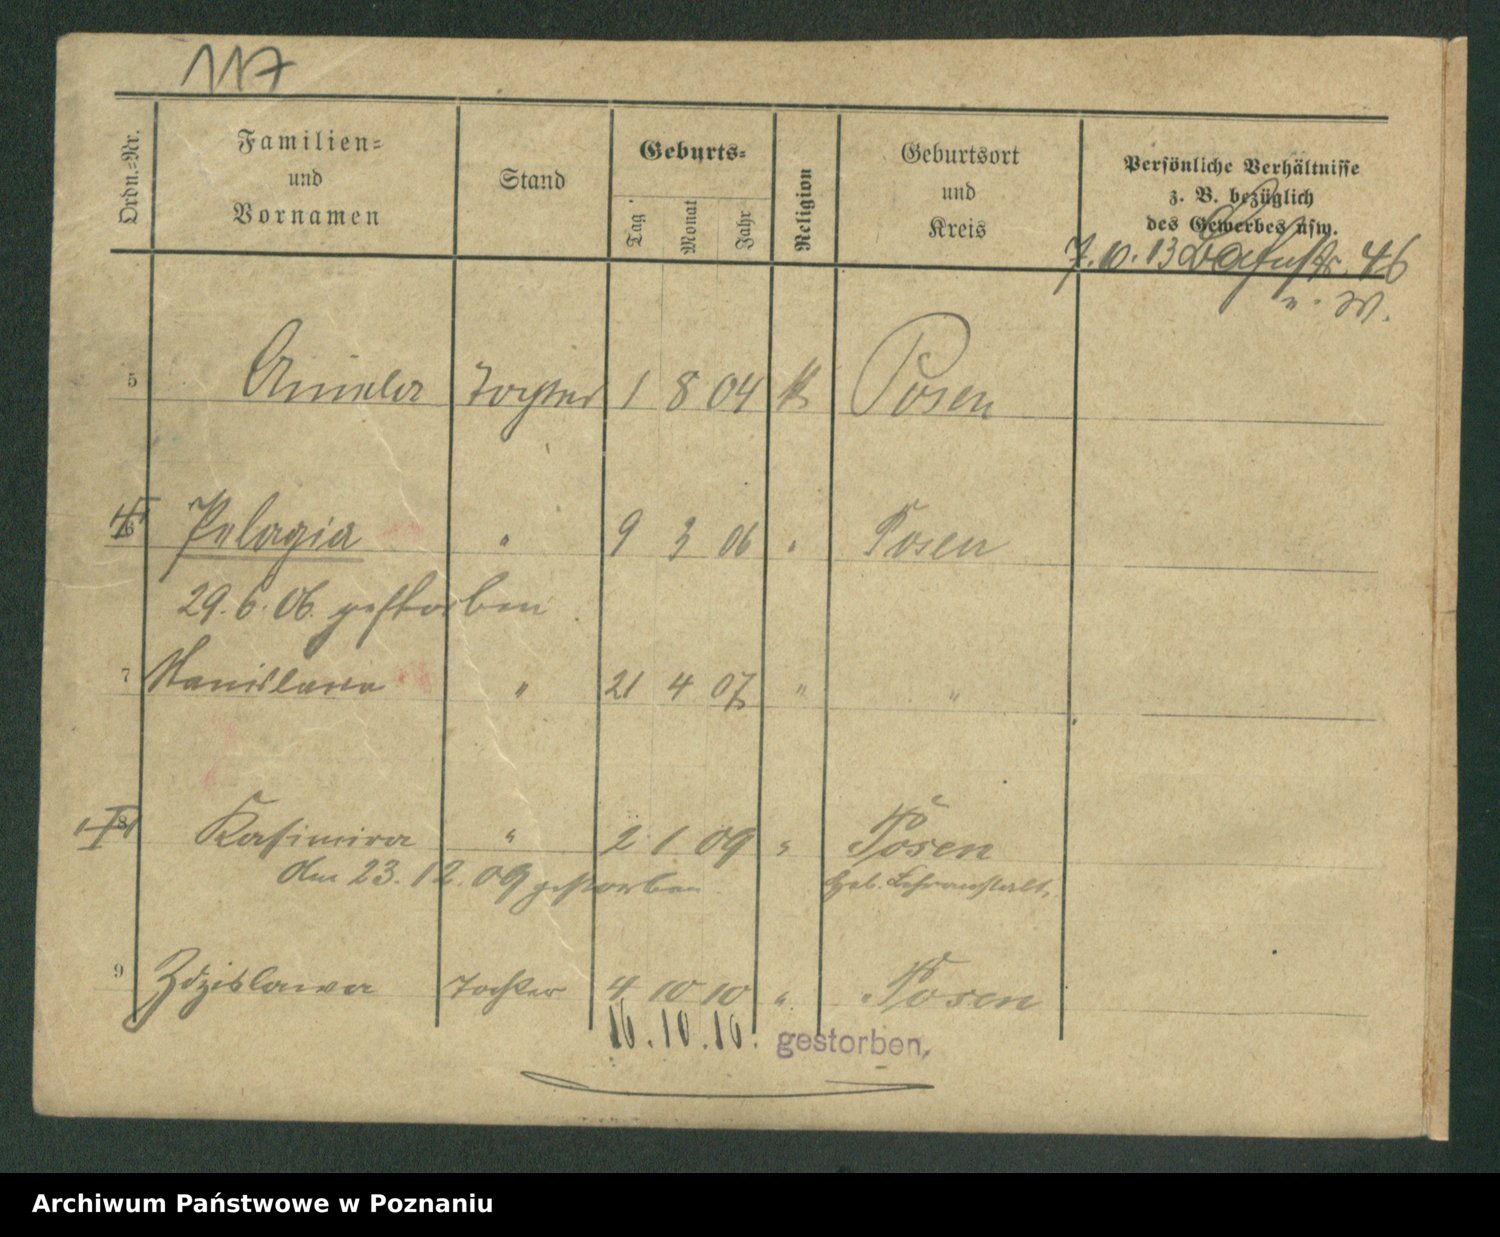 117
Ordn.-Nr.
Familien-
und
Vornamen
Stand
Geburts-
Tag
Monat
Jahr
Religion
Geburtsort
und
Kreis
Persönliche Verhältnisse
z. B. bezüglich
des Gewerbes usw.
7. 10. 13 46
5 Aniela Tochter 1 8 04 k Posen
6 Pelagia " 9 3 06 " Posen
29. 6. 06. gestorben
7 Stanislawa " 21 4 07 " "
8 Kasimira " 2 1 09 " Posen
den 23. 12. 09 gestorben Heb. Lehranstalt
9 Zdzislawa Tochter 4 10 10 " Posen
16. 10. 10. gestorben.
Archiwum Państwowe w Poznaniu